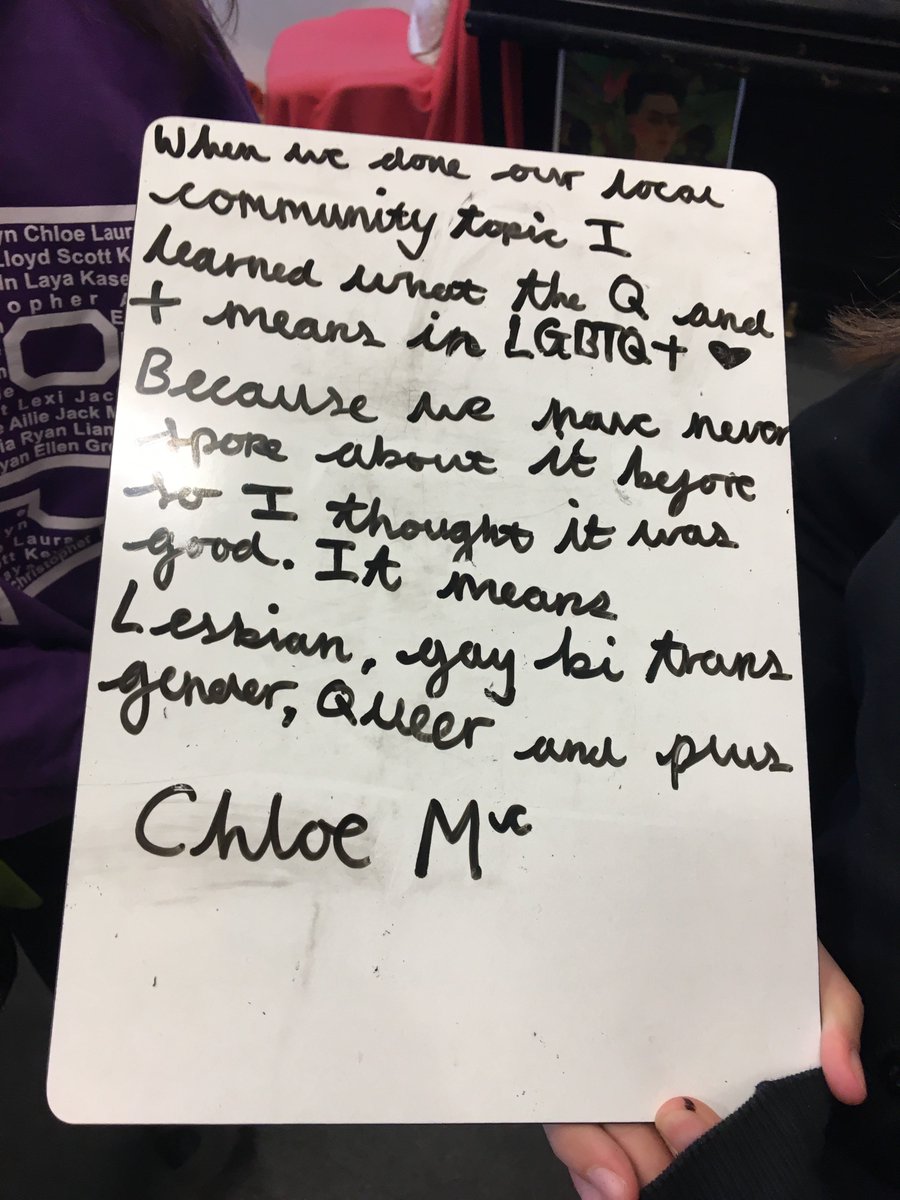 When we done our local
community topic I
learned what the Q and
+ means in LGBTQ+ ♥
Because we have never
spoke about it before
so I thought it was
good. It means
Lesbian, gay bi trans
gender, Queer and plus
Chloe Mc
yn Chloe Laur
Lloyd Scott K
in Laya Kase
opher A
Lexi Jac
Ailie Jack M
ia Ryan Lian
yan Ellen Gre
Laura
christopher